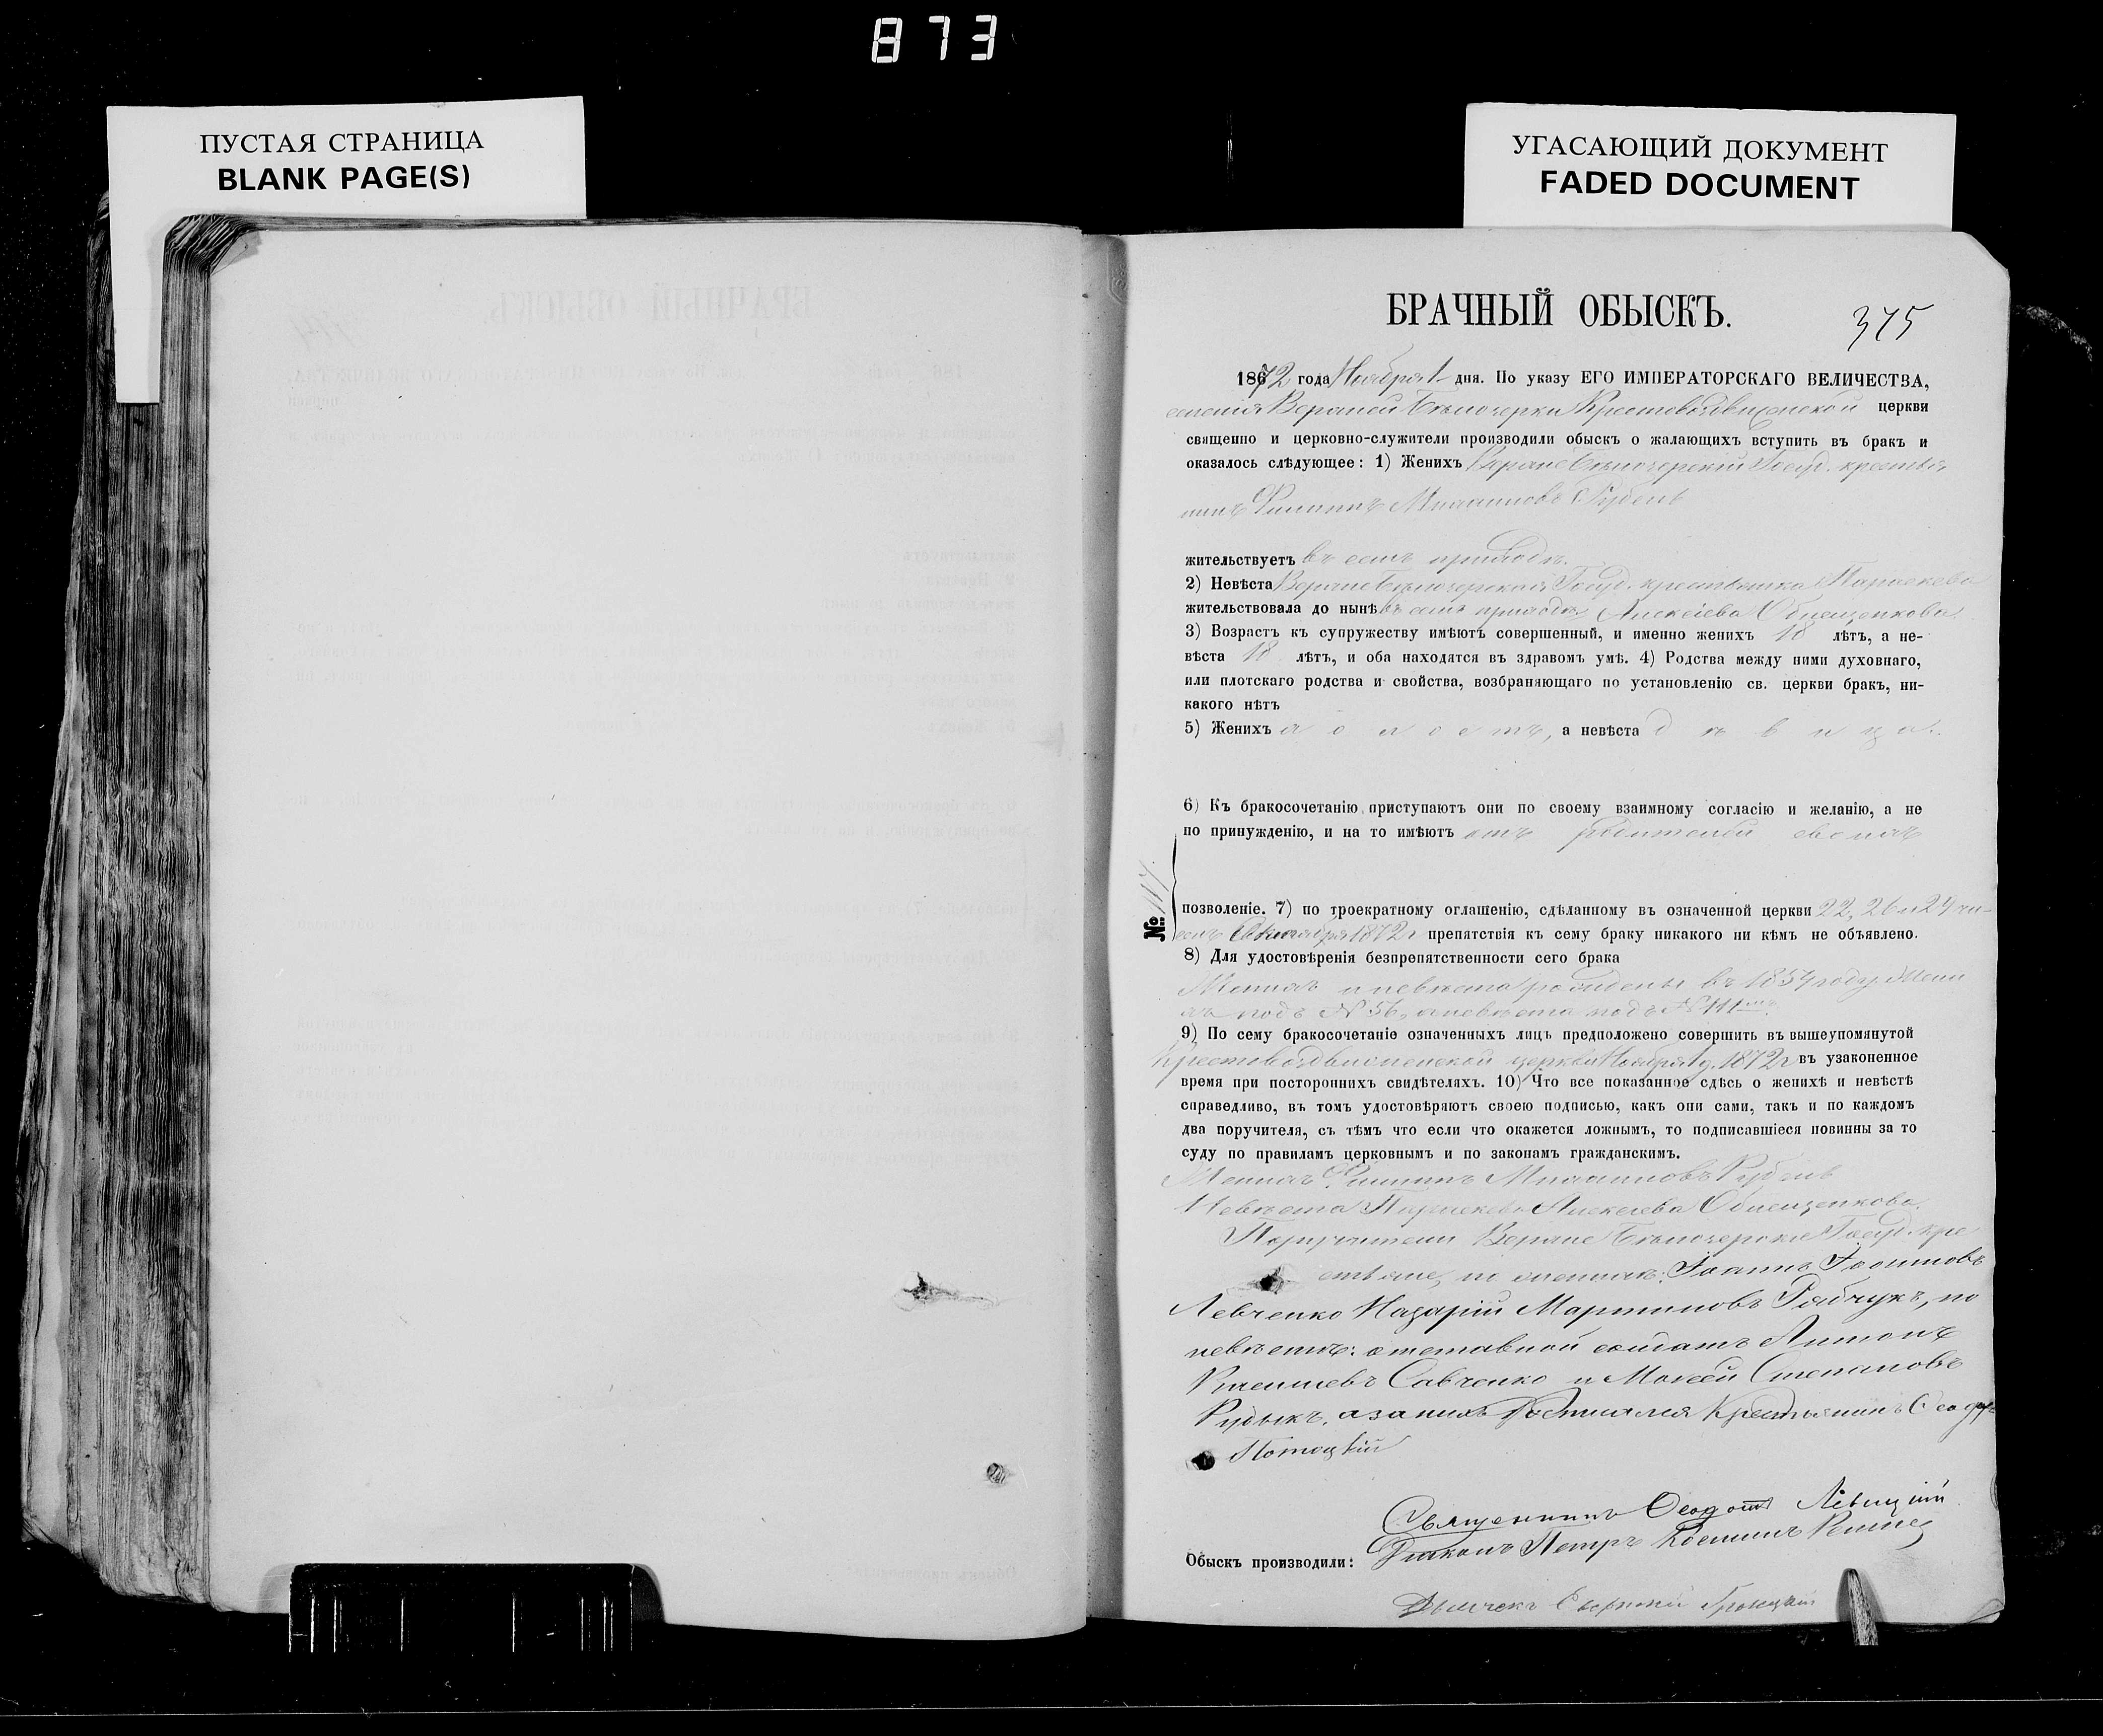 873
ПУСТАЯ СТРАНИЦА
BLANK PAGE(S)
УГАСАЮЩИЙ ДОКУМЕНТ
FADED DOCUMENT
БРАЧНЫЙ ОБЫСКЪ.
375
1872 года Ноября 1 дня. По указу ЕГО ИМПЕРАТОРСКАГО ВЕЛИЧЕСТВА,
селенія Верхней Бѣлозерки Крестовоздвиженской церкви
священно и церковно-служители производили обыскъ о жалающихъ вступить въ бракъ и
оказалось слѣдующее: 1) Женихъ Верхне Бѣлозерскій Госуд. крестья
нинъ Филиппъ Михаиловъ Рубель
жительствуетъ въ семъ приходѣ.
2) Невѣста Верхне Бѣлозерская Госуд. крестьянка Параскева
жительствовала до нынѣ въ семъ приходѣ Алексіева
3) Возрастъ къ супружеству имѣютъ совершенный, и именно женихъ 18 лѣтъ, а не-
вѣста 18 лѣтъ, и оба находятся въ здравомъ умѣ. 4) Родства между ними духовнаго,
или плотскаго родства и свойства, возбраняющаго по установленію св. церкви бракъ, ни-
какого нѣтъ
5) Женихъ холостъ, а невѣста дѣвица.
6) Къ бракосочетанію приступаютъ они по своему взаимному согласію и желанію, а не
по принужденію, и на то имѣютъ отъ родителей своихъ
№ 117.
позволеніе. 7) по троекратному оглашенію, сдѣланному въ означенной церкви 22, 26 и 29 чи-
селъ Октября 1872 г препятствія къ сему браку никакого ни кѣмъ не объявлено.
8) Для удостовѣренія безпрепятственности сего брака
Женихъ и невѣста рождены въ 1854 году Жени
хъ подъ № 56, а невѣста подъ № 111
9) По сему бракосочетаніе означенныхъ лицъ предположено совершить въ вышеупомянутой
Крестовоздвиженской церкви Ноября 1 д. 1872 г въ узаконенное
время при постороннихъ свидѣтеляхъ. 10) Что все показанное сдѣсь о женихѣ и невѣстѣ
справедливо, въ томъ удостовѣряютъ своею подписью, какъ они сами, такъ и по каждомъ
два поручителя, съ тѣмъ что если что окажется ложнымъ, то подписавшіеся повинны за то
суду по правиламъ церковнымъ и по законамъ гражданскимъ.
Женихъ Филиппъ Михаиловъ Рубель
Невѣста Параскева Алексіева
Поручители Верхне Бѣлозерскіе Госуд. кре
стьяне, по женихѣ: Іоаннъ
Левченко Назарій Мартиновъ Рябчукъ, по
невѣстѣ: отставной солдатъ Антонъ
Савченко и Моисей Степановъ
Рудыкъ, а за нихъ Крестьянинъ Ѳеодоръ
Потоцкій
Священникъ Ѳеодотъ Левицкій
Обыскъ производили: Діаконъ Петръ
Дьячекъ